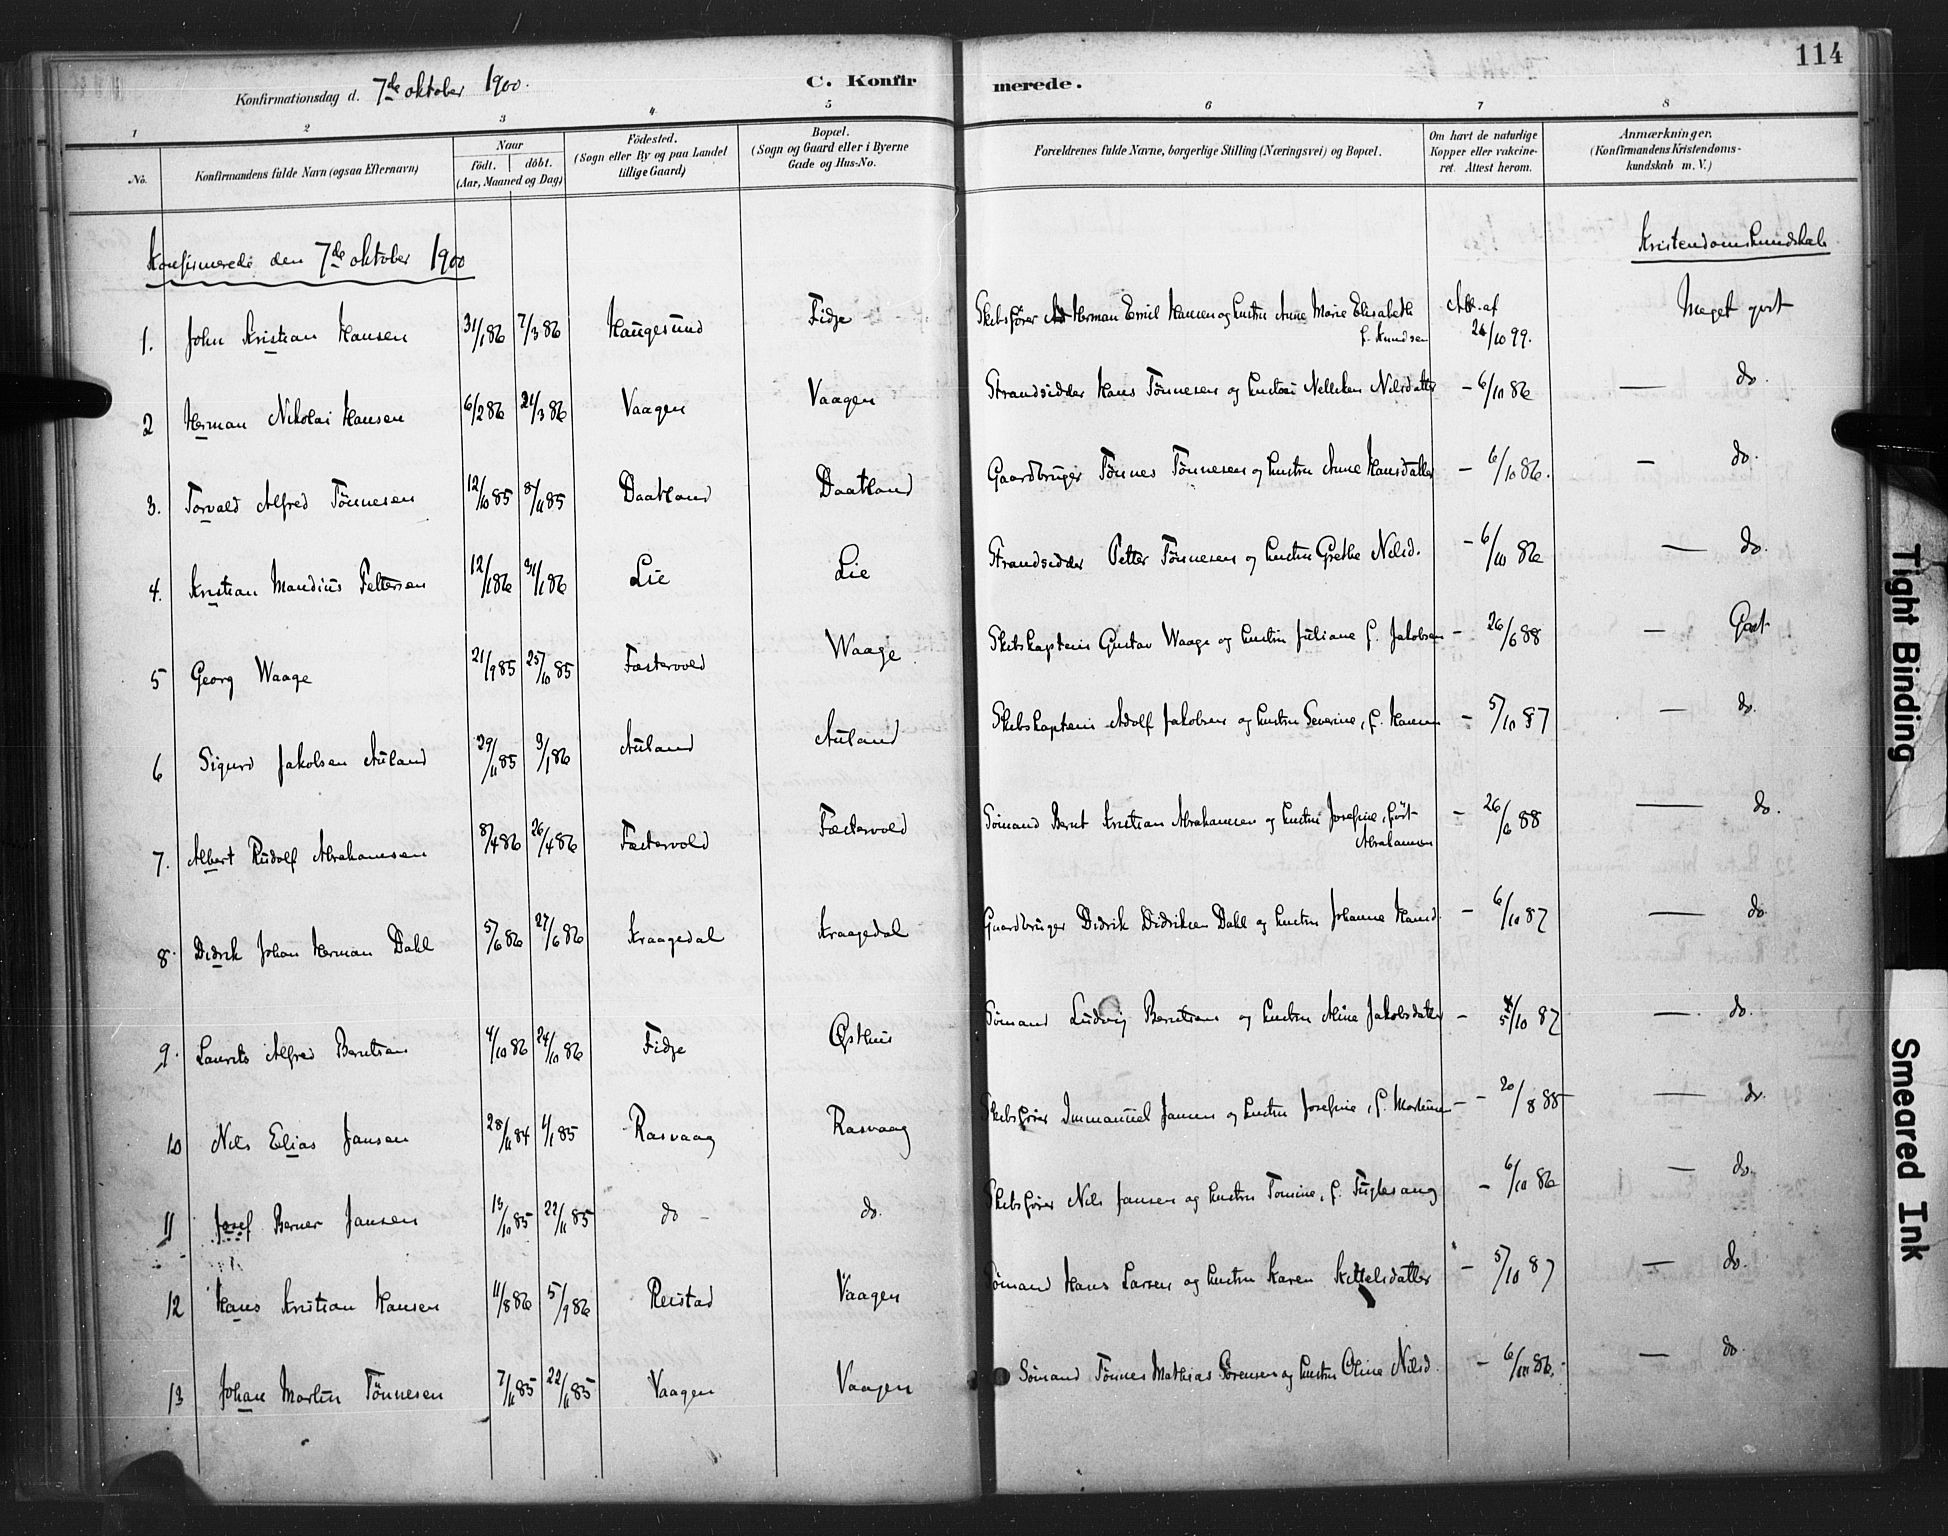 114
Konfirmationsdag d. 7de oktober 1900.
C. Konfirmerede.
1 2 3 4 5 6 7 8
No.
Konfirmandens fulde Navn (ogsaa Efternavn)
Naar
födt. döbt.
(Aar, Maaned og Dag)
Födested.
(Sogn eller By og paa Landet
tillige Gaard)
Bopæl.
(Sogn og Gaard eller i Byerne
Gade og Hus-No.
Forældrenes fulde Navne, borgerlige Stilling (Næringsvei) og Bopæl.
Om havt de naturlige
Kopper eller vakcine-
ret. Attest herom.
Anmærkninger.
(Konfirmandens Kristendoms-
kundskab m. V.)
Konfirmerede den 7de oktober 1900
Kristendomskundskab
1. John Kristian Hansen 31/1 86 7/3 86 Haugesund Fidje Skibsfører Herman Emil Hansen og hustru Anne Marie Elisabeth
f. Knudsen
Att. af
26/10 99. Meget godt
2 Herman Nikolai Hansen 6/2 86 21/3 86 Vaagen Vaagen Strandsidder Hans Tønnesen og hustru Nelleken Nilsdatter - 6/10 86 — do.
3. Torvald Alfred Tønnesen 12/10 85 8/11 85 Daatland Daatland Gaardbruger Tønnes Tønnesen og hustru Anne Hansdatter - 6/10 86. — do.
4. Kristian Mandius Pettersen 12/1 86 31/1 86 Lie Lie Strandsidder Petter Tønnesen og hustru Grethe Nilsd. - 6/10 86 — do.
5 Georg Waage 21/9 85 25/10 85 Fæstervold Waage Skibskaptein Gustav Waage og hustru Juliane f. Jakobsen - 26/6 88 — Godt
6 Sigurd Jakobsen Auland 29/11 85 3/1 86 Auland Auland Skibskaptein Adolf Jakobsen og hustru Severine, f. Hansen - 5/10 87 — do.
7. Albert Rudolf Abrahamsen 8/4 86 26/4 86 Fæstervold Fæstervold Sømand Bernt Kristian Abrahamsen og hustru Josefine, født
Abrahamsen - 26/6 88 — do.
8. Didrik Johan Herman Dahl 5/6 86 27/6 86 Kraagedal Kraagedal Gaardbruger Didrik Didriksen Dahl og hustru Johanne Hansd. - 6/10 87 — do.
9. Laurits Alfred Berntsen 4/10 86 24/10 86 Fidje Østhus Sømand Ludvig Berntsen og hustru Aline Jakobsdatter - 5/10 87 — do.
10 Nils Elias Jansen 28/11 84 1/1 85 Rasvaag Rasvaag Skibsfører Immanuel Jansen og hustru Josefine, f. Mortensen - 20/8 88 — do.
11 Josef Berner Jansen 13/10 85 22/11 85 do - do. Skibsfører Nils Jansen og hustru Tomine, f. Fuglesang - 6/10 86 — do.
12 Hans Kristian Hansen 11/8 86 5/9 86 Reistad Vaagen Sømand Hans Larsen og hustru Karen Kittelsdatter - 5/10 87 — do.
13 Johan Martin Tønnesen 7/11 85 22/11 85 Vaagen Vaagen Sømand Tønnes Mathias Sørensen og hustru Oline Nilsd. - 6/10 86. — do.
Tight Binding
Smeared Ink